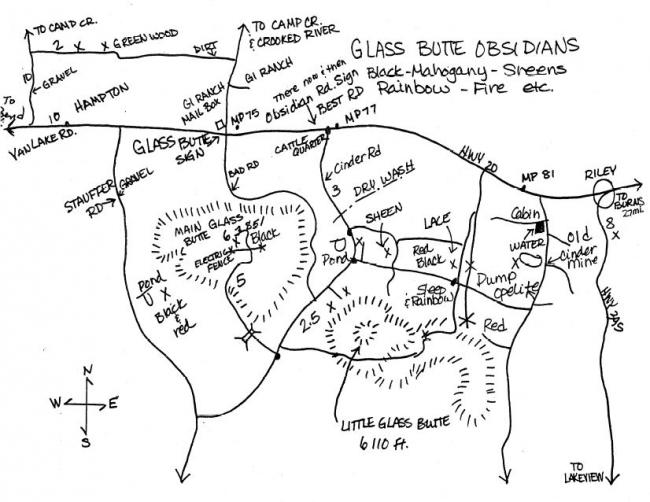 TO CAMP CR.
TO CAMP CR.
& CROOKED RIVER
2 X X GREENWOOD
DIRT
GLASS BUTTE OBSIDIANS
Black-Mahogany-Sheens
Rainbow - Fire etc.
10
GRAVEL
GI RANCH
HAMPTON
GI RANCH
MAIL BOX
There now & then
Obsidian Rd. Sign
BEST RD
To
10
MP75
MP77
VAN LAKE RD.
GLASS BUTTE
SIGN
CATTLE
QUARTER
HWY 20
MP 81
RILEY
TO
BURNS
27mi.
STAUFFER
RD
GRAVEL
BAD RD
Cinder Rd
3
DRY WASH
MAIN GLASS
BUTTE
Black
ELECTRIC
FENCE
SHEEN
LACE
Red
Black
Cabin
WATER
Old
Cinder
mine
8
X
Pond
X
Black
&
red
.5
Pond
Dump
opelite
Sleep
& Rainbow
2.5
X X
Red
HWY 395
N
W E
S
LITTLE GLASS BUTTE
6110 ft.
TO
LAKEVIEW